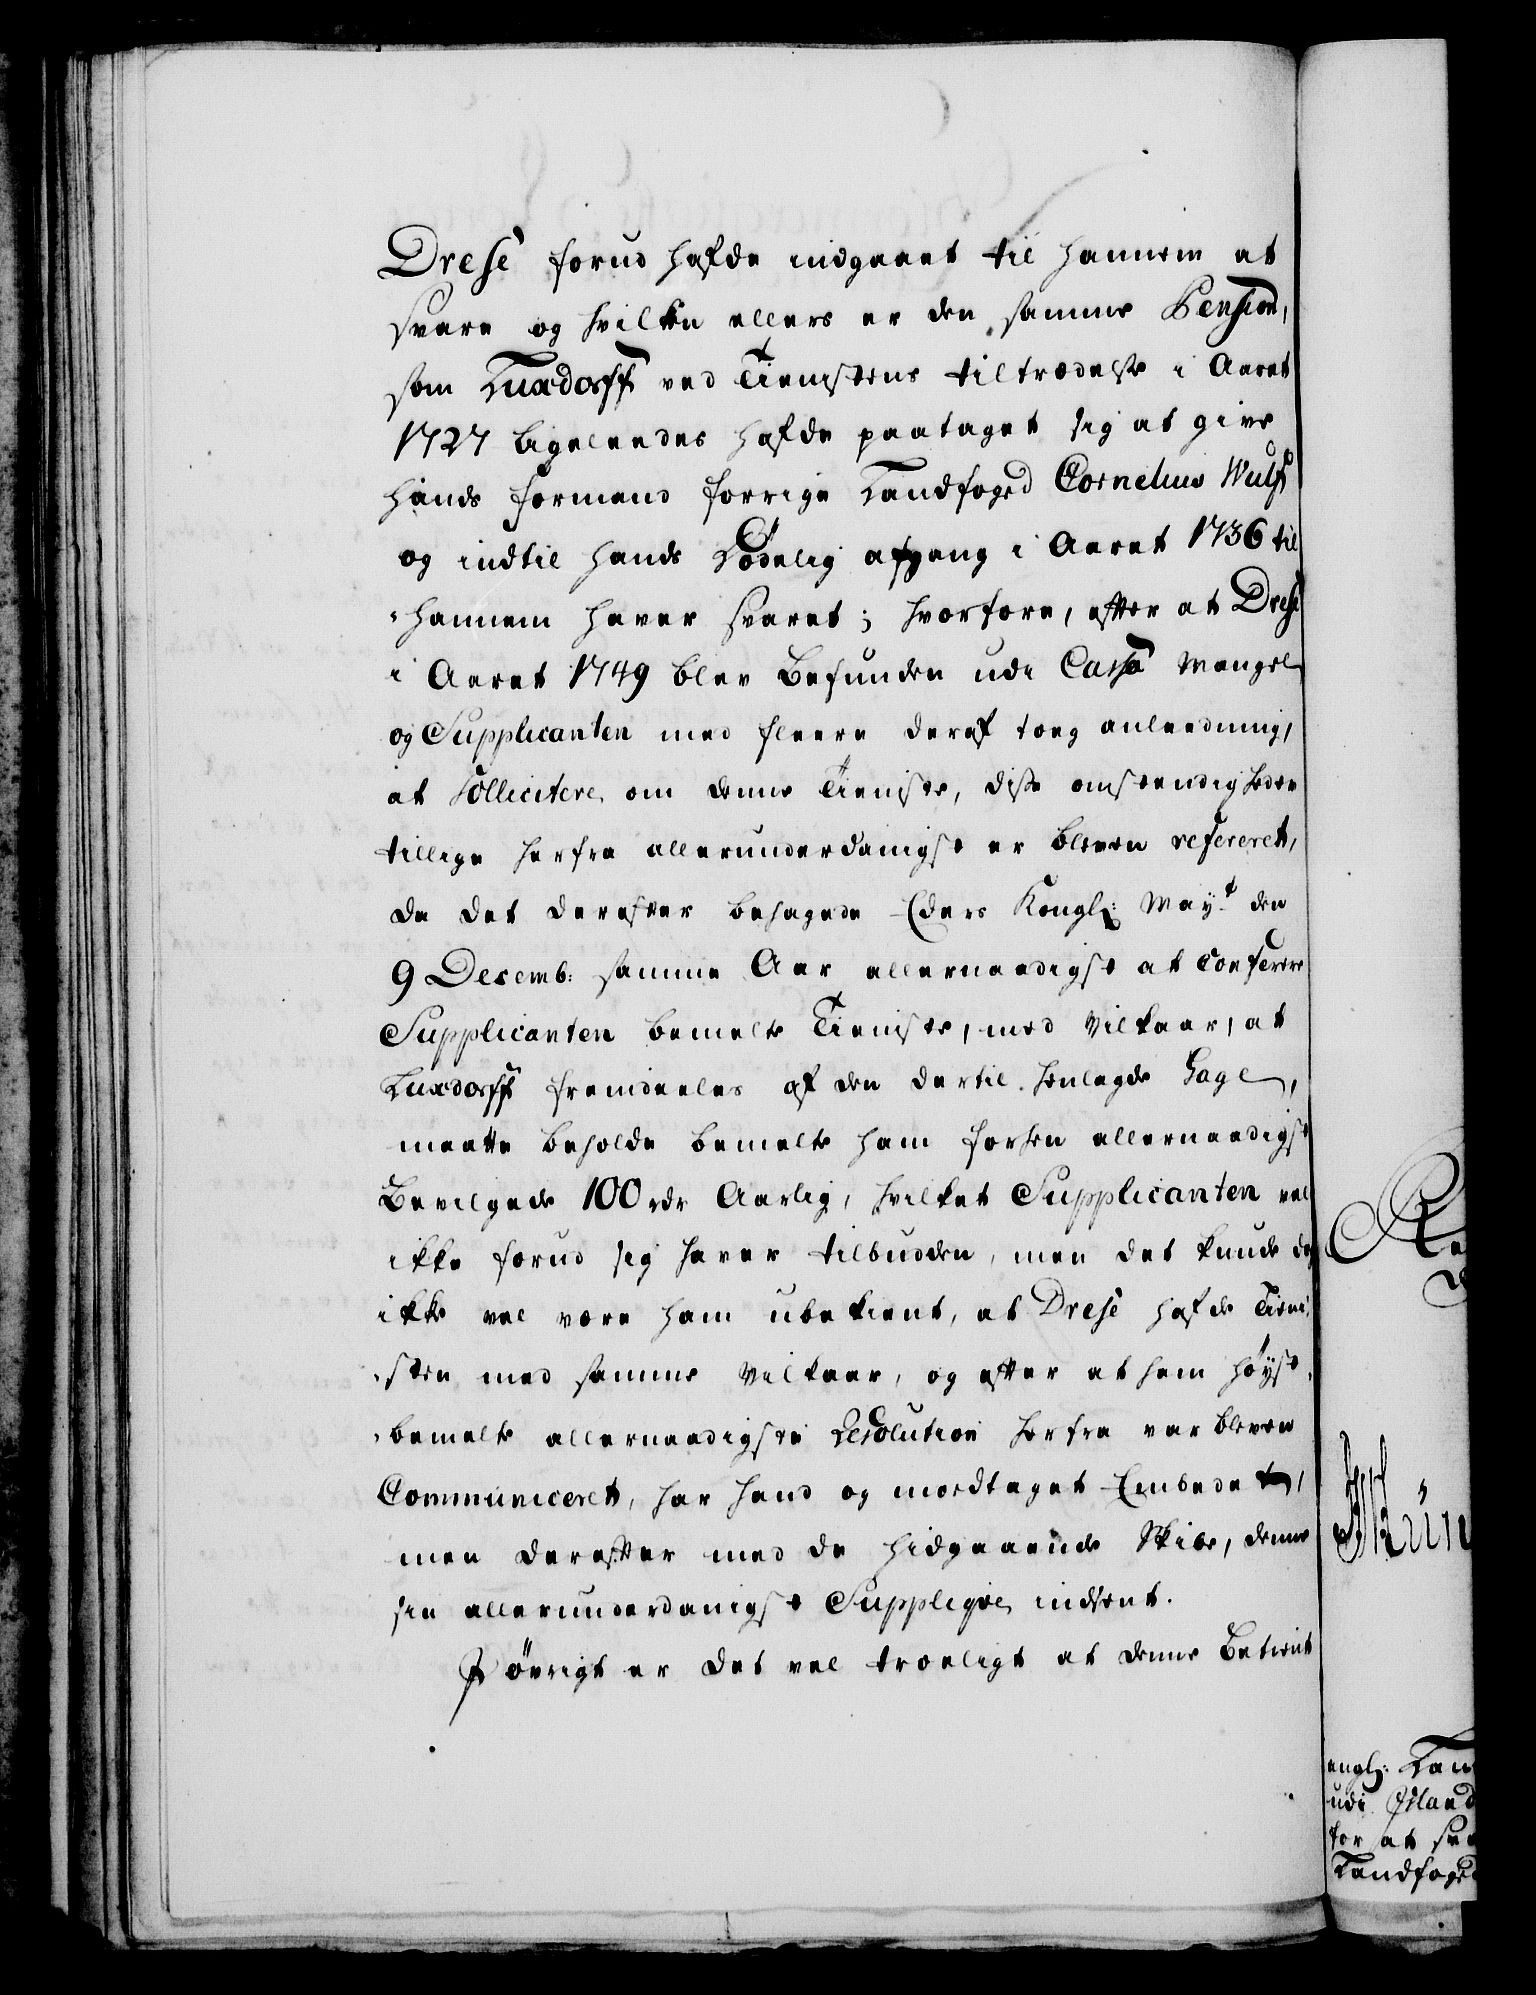 Drese forud hafde indgaaet til hannem at
svare og hvilken ellers er den samme Pension,
som Luxdorff ved Tienistens tiltrædelse i Aaret
1727 ligeleedes hafde paataget sig at give
hands formand forrige Landfoged Cornelius Wulf
og indtil hands Dødelig afgang i Aaret 1736 til
hannem haver svaret; hvorfore, efter at Drese
i Aaret 1749 blev befunden udi Cassa Mangel
og Supplicanten med fleere deraf toeg anleedning,
at sollicitere om denne Tieniste, disse omstændigheder
tillige herfra allerunderdanigst er bleven refereret,
da det derefter behagede Eders Kongl: May.t den
9 Decemb: samme Aar allernaadigst at conferere
Supplicanten bemelte Tieniste, med Vilkaar, at
Luxdorff fremdeeles af den dertil henlagde Gage,
maatte beholde bemelte ham forhen allernaadigst
bevilgede 100 rdr Aarlig, hvilket Supplicanten vel
ikke forud sig haver tilbudden, men det kunde dog
ikke vel være ham ubekient, at Drese hafde Tieni-
-sten med samme Vilkaar, og efter at ham høyst-
-bemelte allernaadigste Resolution herfra var bleven
Communiceret, har hand og modtaget Embedet,
men derefter med de hidgaaende Skibe, denne
sin allerunderdanigst Suppliqve indsent.
I øvrigt er det vel troeligt at denne Betient
engl: Lan
udi Island
for at sva
Landfoged